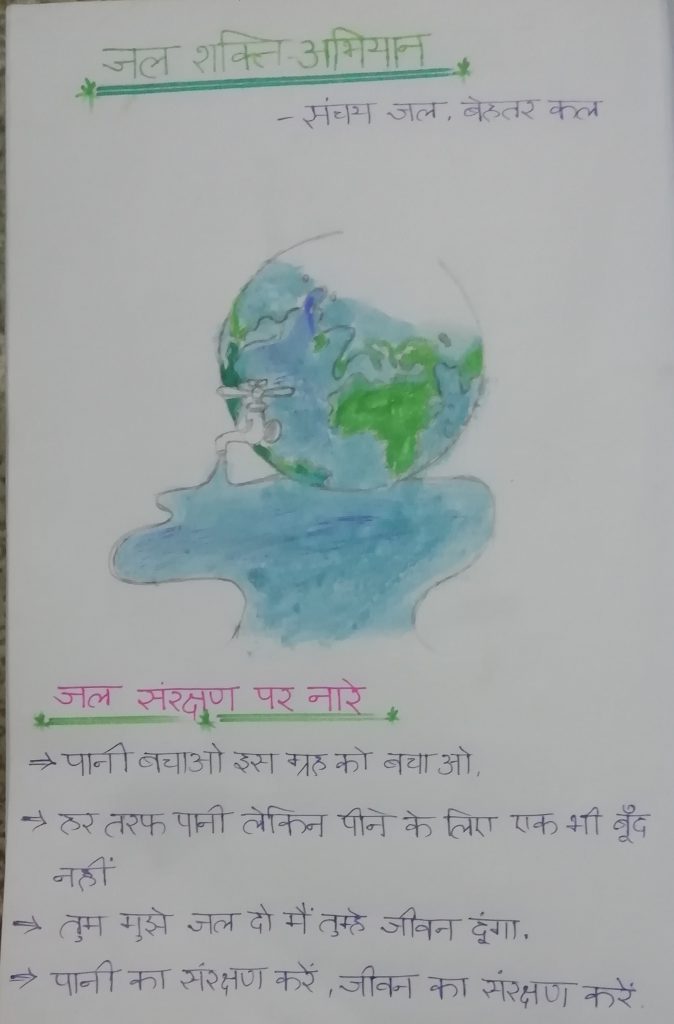 जल शक्ति-अभियान
- संचय जल, बेहतर कल
जल संरक्षण पर नारे
⇒ पानी बचाओ इस ग्रह को बचाओ.
⇒ हर तरफ पानी लेकिन पीने के लिए एक भी बूँद
नहीं
⇒ तुम मुझे जल दो मैं तुम्हे जीवन दूंगा.
⇒ पानी का संरक्षण करें, जीवन का संरक्षण करें.